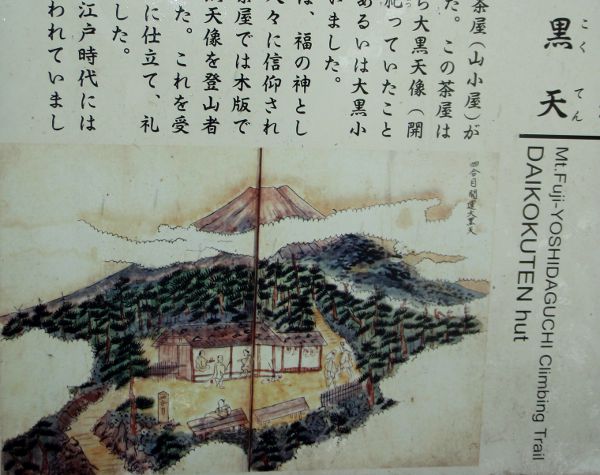 黒天
こくてん
Mt.Fuji-YOSHIDAGUCHI Climbing Trail
DAIKOKUTEN hut
茶屋(山小屋)が
た。この茶屋は
ら大黒天像(開
祀っていたこと
あるいは大黒小
いました。
は、福の神とし
人々に信仰され
茶屋では木版で
天像を登山者
た。これを受
に仕立て、礼
した。
江戸時代には
われていまし
四合目開運大黒天